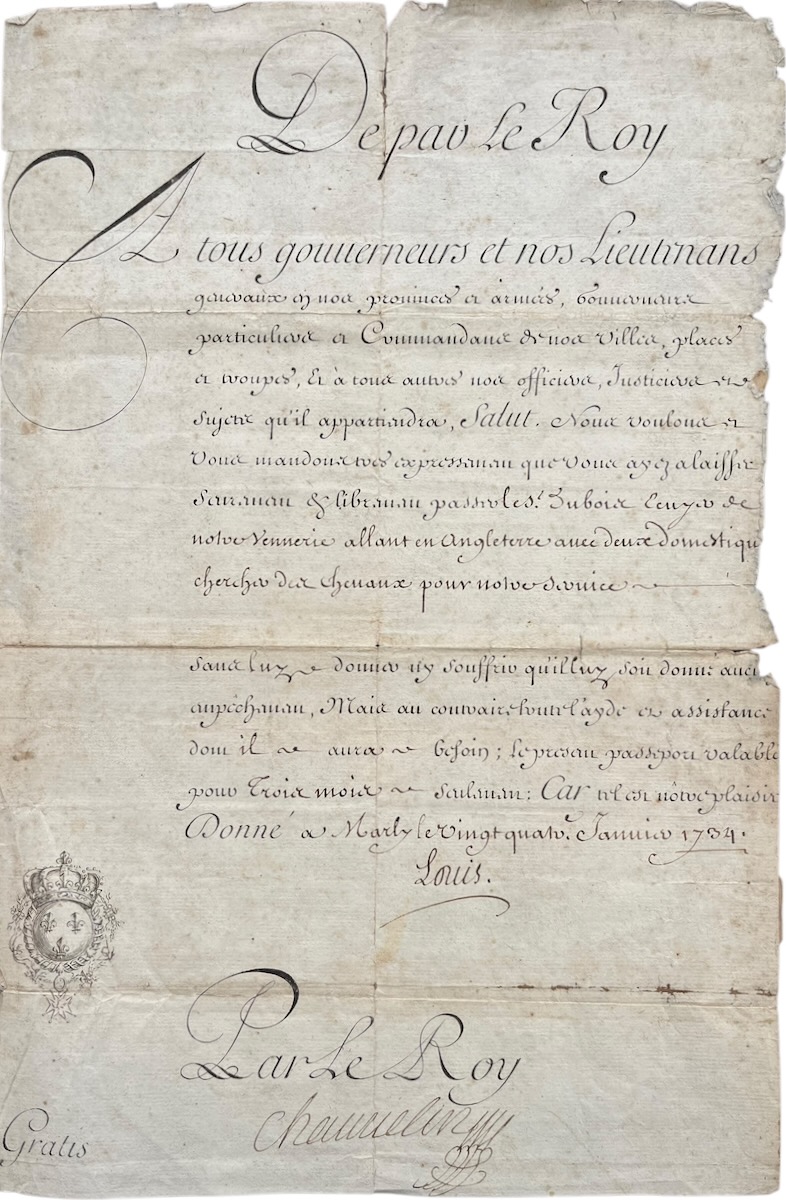 De par Le Roy
A tous gouverneurs et nos Lieutenans
generaux en nos provinces et armées, Gouverneurs
particuliers et Commandans de nos Villes, places
et troupes, Et à tous autres nos officiers, Justiciers et
Sujets qu'il appartiendra, Salut. Nous voulons et
Vous mandons tres expressement que vous ayez a laisser
seurement & librement passer le Sr. Dubois Ecuyer de
notre Vennerie allant en Angleterre avec deux domestiqu
chercher des Chevaux pour notre service
sans luy donner ny souffrir qu'il luy soit donné aucu
empéchement, Mais au contraire toute l'ayde et assistance
dont il aura besoin; Le present passeport valable
pour Trois mois seulement: Car tel est nôtre plaisir
Donné a Marly le Vingt quatre. Janvier 1734.
Louis.
Par Le Roy
Chauvelin
Gratis